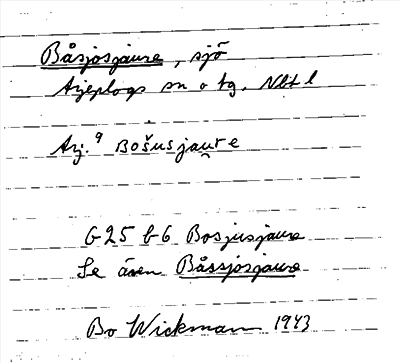 Båsjosjaure, sjö
Arjeplogs sn o tg. Nbt l
Arj. 9 Bošusjau̯re
G25 b6 Bosjusjaure
Se även Båssjosjaure
Bo Wickman 1943